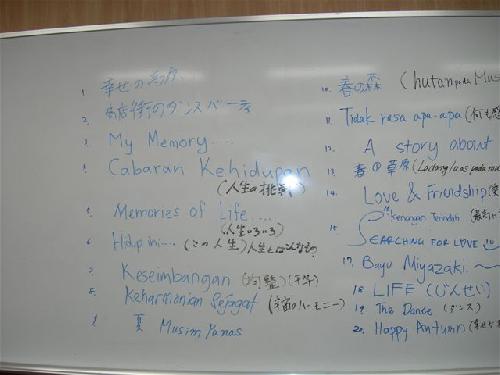 1. 幸せの
2. 商店街のダンスパーティ
3. My Memory....
4. Cabaran Kehidupan
(人生の挑戦)
5. Memories of Life....
(人生のいろいろ)
6. Hidup ini... (この人生) 人生とはこんなもの
7. Keseimbangan (均整) (平等)
8. Keharmonian Sejagat (宇宙のハーモニー)
9. 夏 Musim Panas
10. 春の森 (hutan pada Mus
11. Tidak rasa apa-apa (何も
12. A story about
13. 春の草原 (Ladang/
14. Love & Friendship
15. Kenangan Terindah
16. SEARCHING FOR LOVE
17. Bayu Miyazaki ~
18. LIFE (じんせい)
19. The Dance (ダンス)
20. Happy Autumn (幸せ